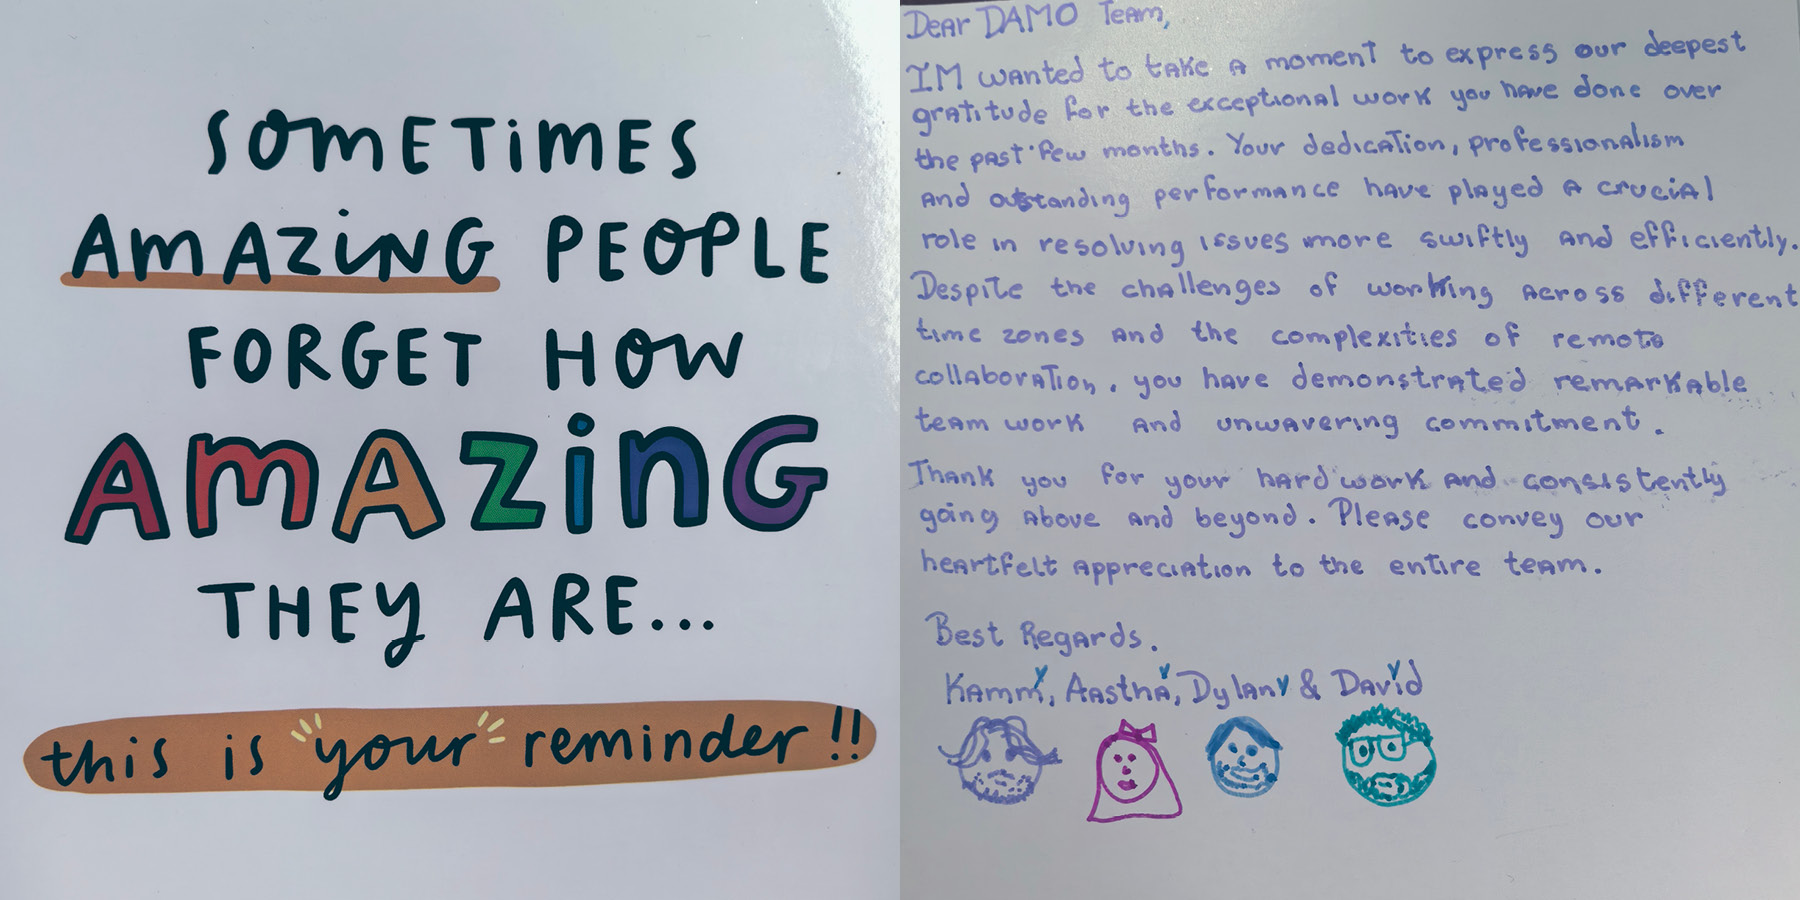 SOMETIMES
AMAZING PEOPLE
FORGET HOW
AMAZING
THEY ARE...
this is "your" reminder!!
Dear DAMO Team,
IM wanted to take a moment to express our deepest
gratitude for the exceptional work you have done over
the past few months. Your dedication, professionalism
and outstanding performance have played a crucial
role in resolving issues more swiftly and efficiently.
Despite the challenges of working across different
time zones and the complexities of remote
collaboration, you have demonstrated remarkable
team work and unwavering commitment.
Thank you for your hard work and consistently
going above and beyond. Please convey our
heartfelt appreciation to the entire team.
Best Regards.
Kamm, Aastha, Dylan & David